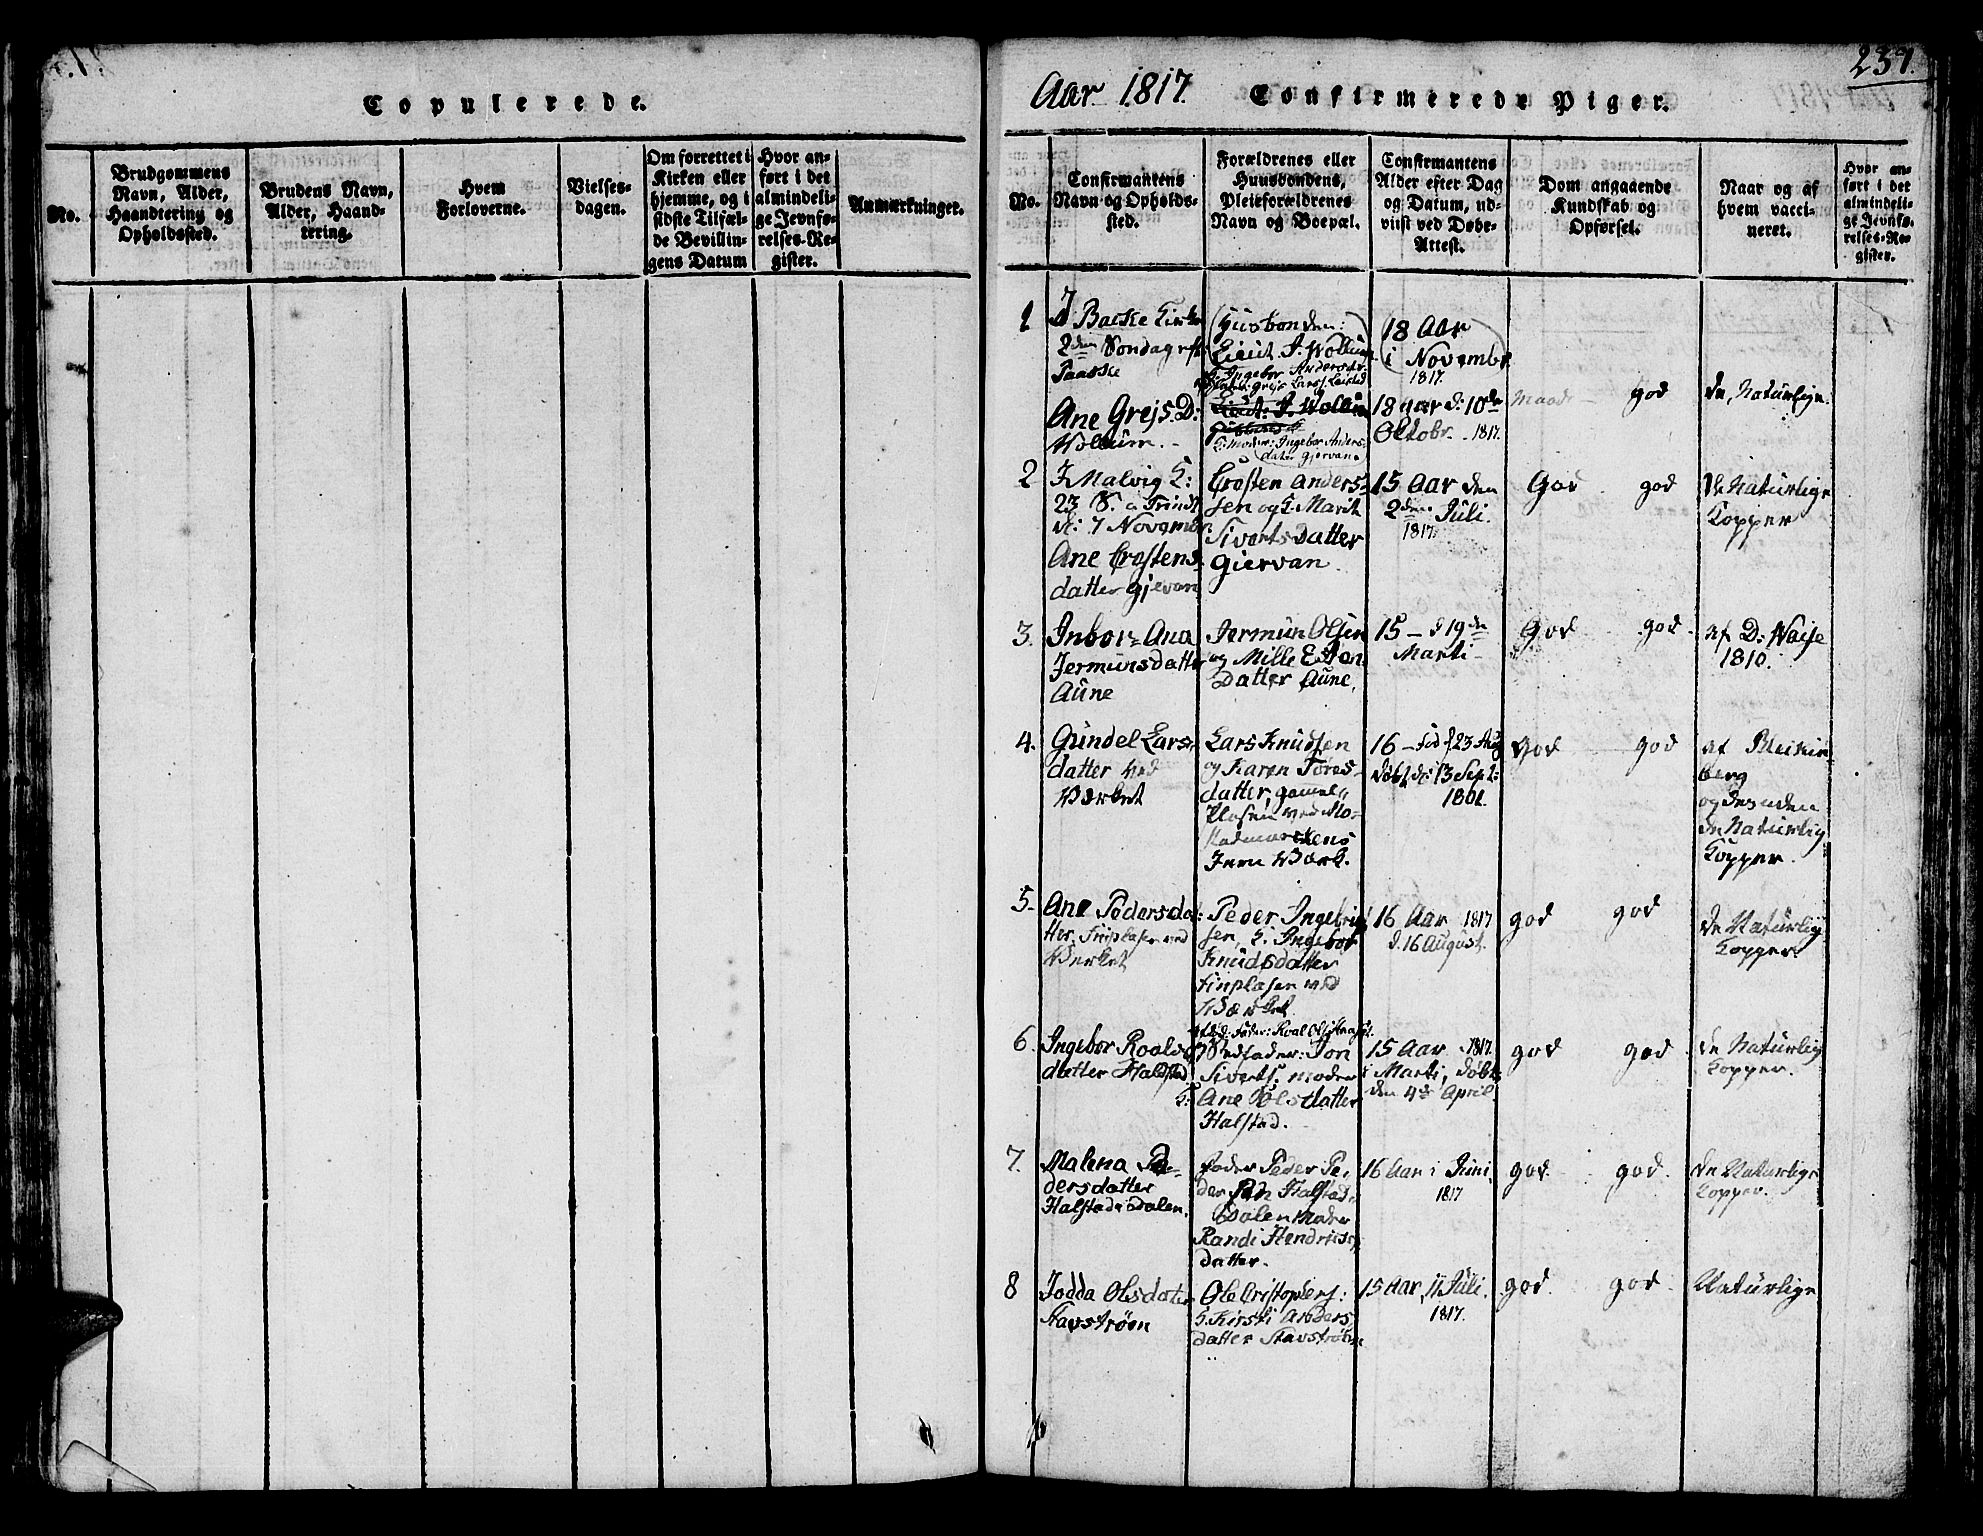 Copulerede.
No.
Brudgommens
Navn, Alder,
Haandtering og
Opholdssted.
Brudens Navn,
Alder, Haand-
tering.
Hvem
Forloverne.
Vielses-
dagen.
Om forrettet i
Kirken eller
hjemme, og i
sidste Tilfæl-
de Bevillin-
gens Datum
Hvor an-
ført i det
almindeli-
ge Jevnfø-
relses-Re-
gister.
Anmærkninger.
Aar 1817.
Confirmerede Piger.
239.
No.
Confirmantens
Navn og Opholds-
sted.
Forældrenes eller
Huusbondens,
Pleieforældrenes
Navn og Boepæl.
Confirmantens
Alder efter Dag
og Datum, ud-
viist ved Døbe-
Attest.
Dom angaaende
Kundskab og
Opførsel.
Naar og af
hvem vacci-
neret.
Hvor an-
ført i det
almindeli-
ge Jevnfø-
relses-Re-
gister.
1
Bakke Kirke
2den Søndag eft:
Paaske
Ane Grejs. D:
Husbonden:
Lieut. J. Wollum
Ingebor Anders
datter Gjervan
18 Aar
i Novembr
1817.
18 aar d: 10de
Oktobr. 1817.
Maade
god
de Naturlige
2
J Malvig K:
23 S. a Trinit
d: 7 Novembr:
Ane Crostens
datter Gjevan
Crosten Anders-
sen og K. Marit
Sivertsdatter
Giervan.
15 Aar den
2den Juli.
1817.
God
god
de Naturlige
Kopper
3.
Inbor Ana
Jermunsdatter
Aune
Jermun Olsen
og Mille Eston
datter Aune.
15 - d 19de
Marti
God
god
af D: Naise
1810.
4.
Gundel Lars
datter ved
Værket
Lars Knudsen
og Karen Tores-
datter, gamel
Plasen ved Mo-
stadmarkens
Jern Værk.
16 - fød d 23 Aug
døbt d: 13 Sept:
1801.
god
god
af
berg
og desuden
de Naturlig
Kopper.
5.
Ane Pedersdat:
ter, Finplasen ved
Verket
Peder Ingebrigt
sen, K. Ingebor
Knudsdatter
Finplasen ved
Værket
16 Aar 1817
d. 16 August.
god
god
de Naturlig
Kopper.
6.
Ingebor Roalds
datter Halstad
Stedfader: Jon
Siverts. moder
K: Ane Olsdatter
Halstad.
15 Aar 1817.
i Marti, døbt
den 4de April
god
god
de Naturlig
Kopper.
7.
Malena Pe-
dersdatter
Halstadsdalen.
fader Peder Pe-
dersen Halstad-
dalen Moder
Randi Hendrics
datter.
16 Aar i Juni
1817
god
god.
de Naturlige
Kopper.
8
Jodda Olsdater
Stavstrøen
Ole Cristophers:
K. Kirsti Anders
datter Stavstrøen
15 Aar, 11 Juli.
1817.
god.
god.
Naturlige